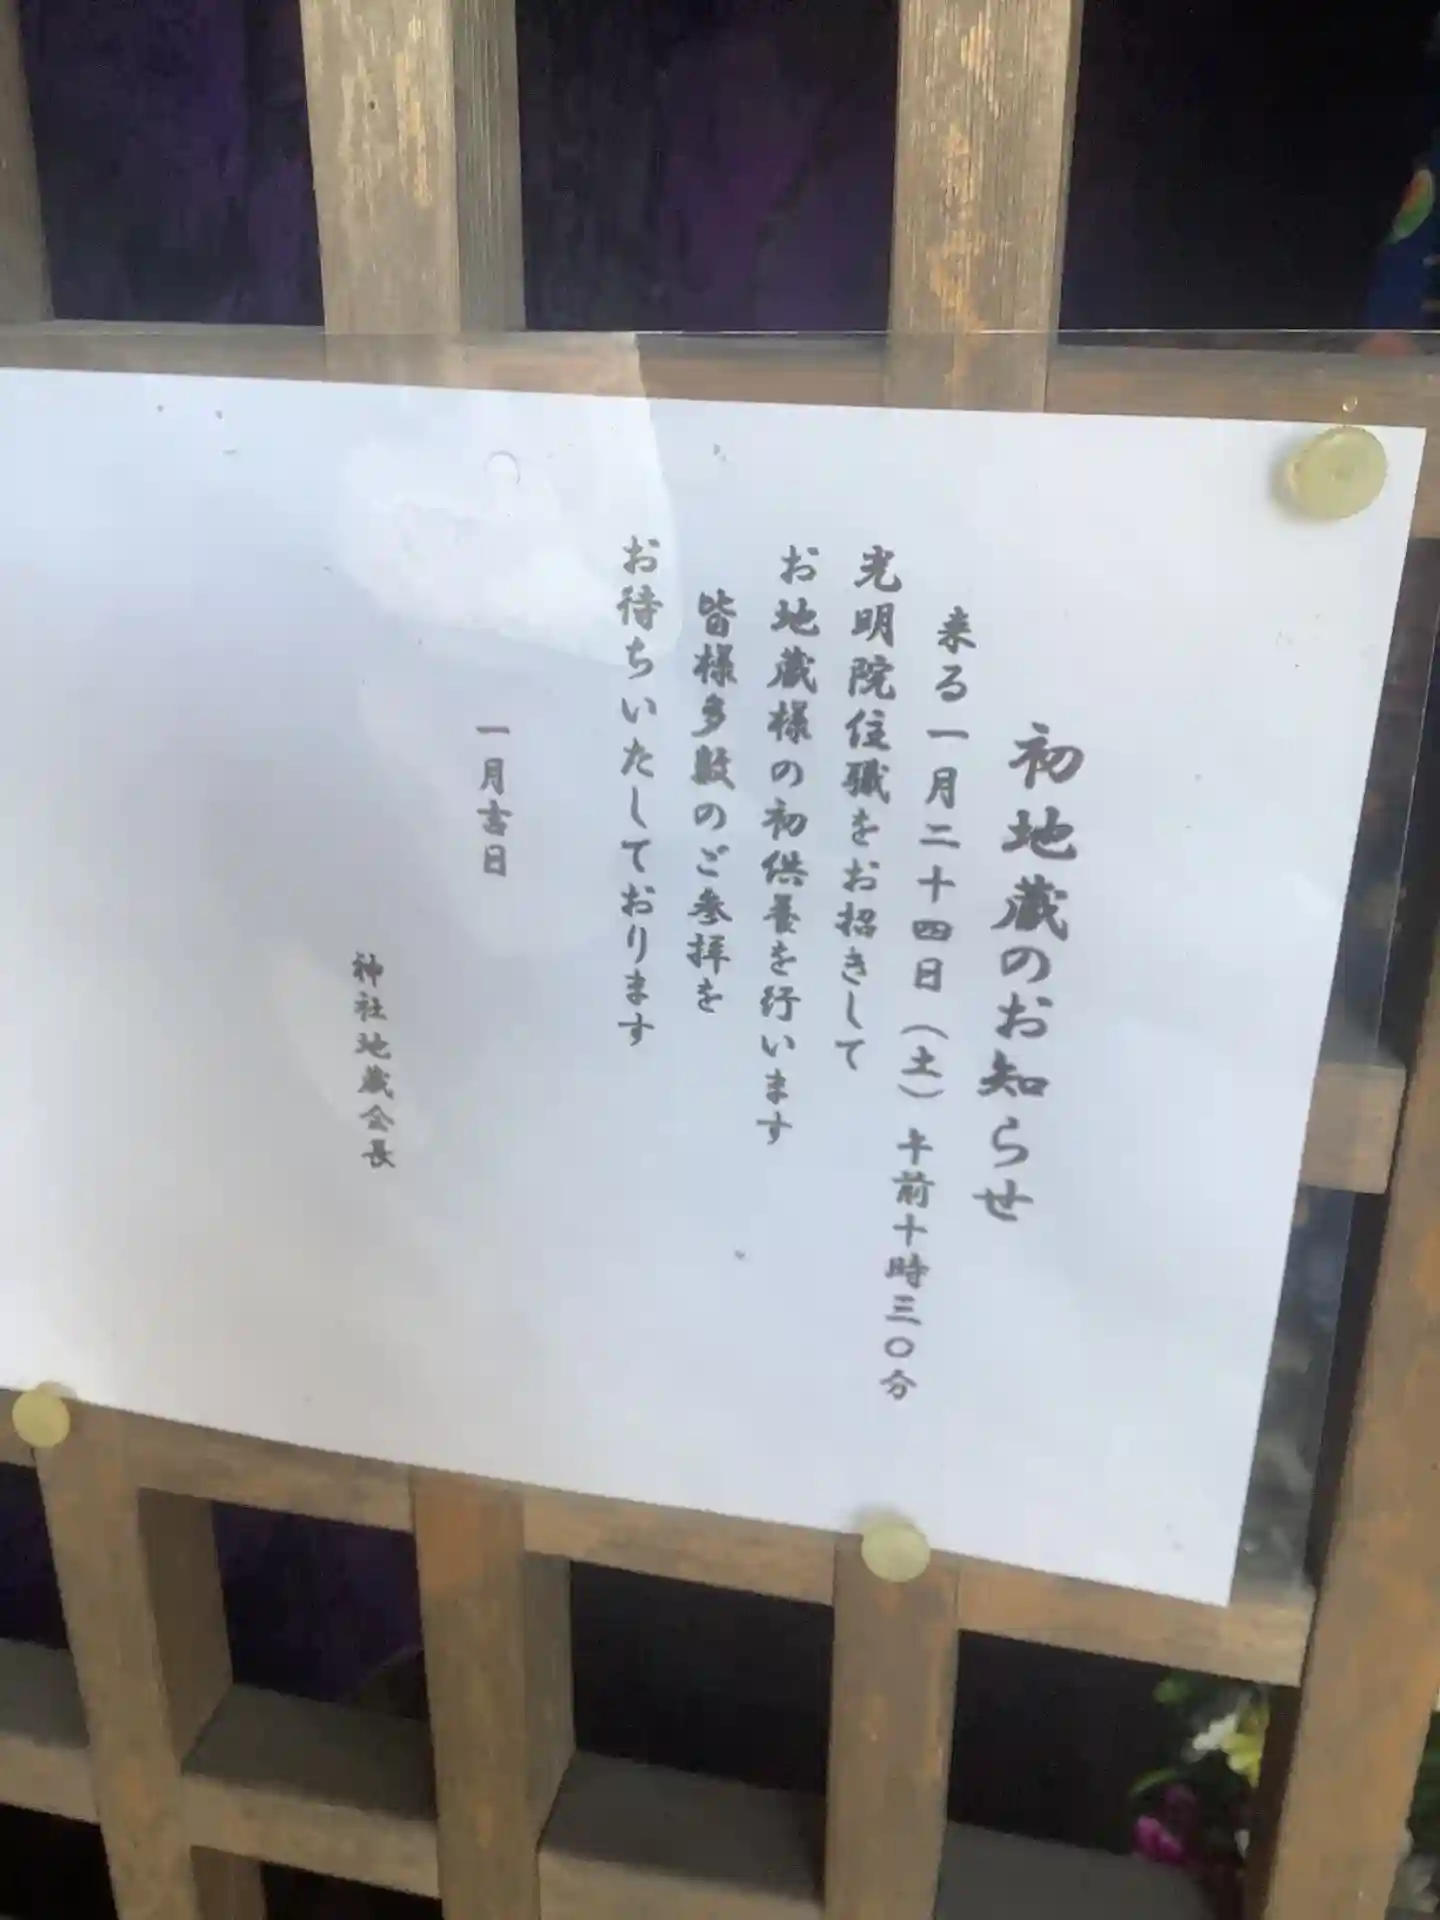 初地蔵のお知らせ
来る一月二十四日（土）午前十時三〇分
光明院住職をお招きして
お地蔵様の初供養を行います
皆様多数のご参拝を
お待ちいたしております
一月吉日
神社地蔵会長